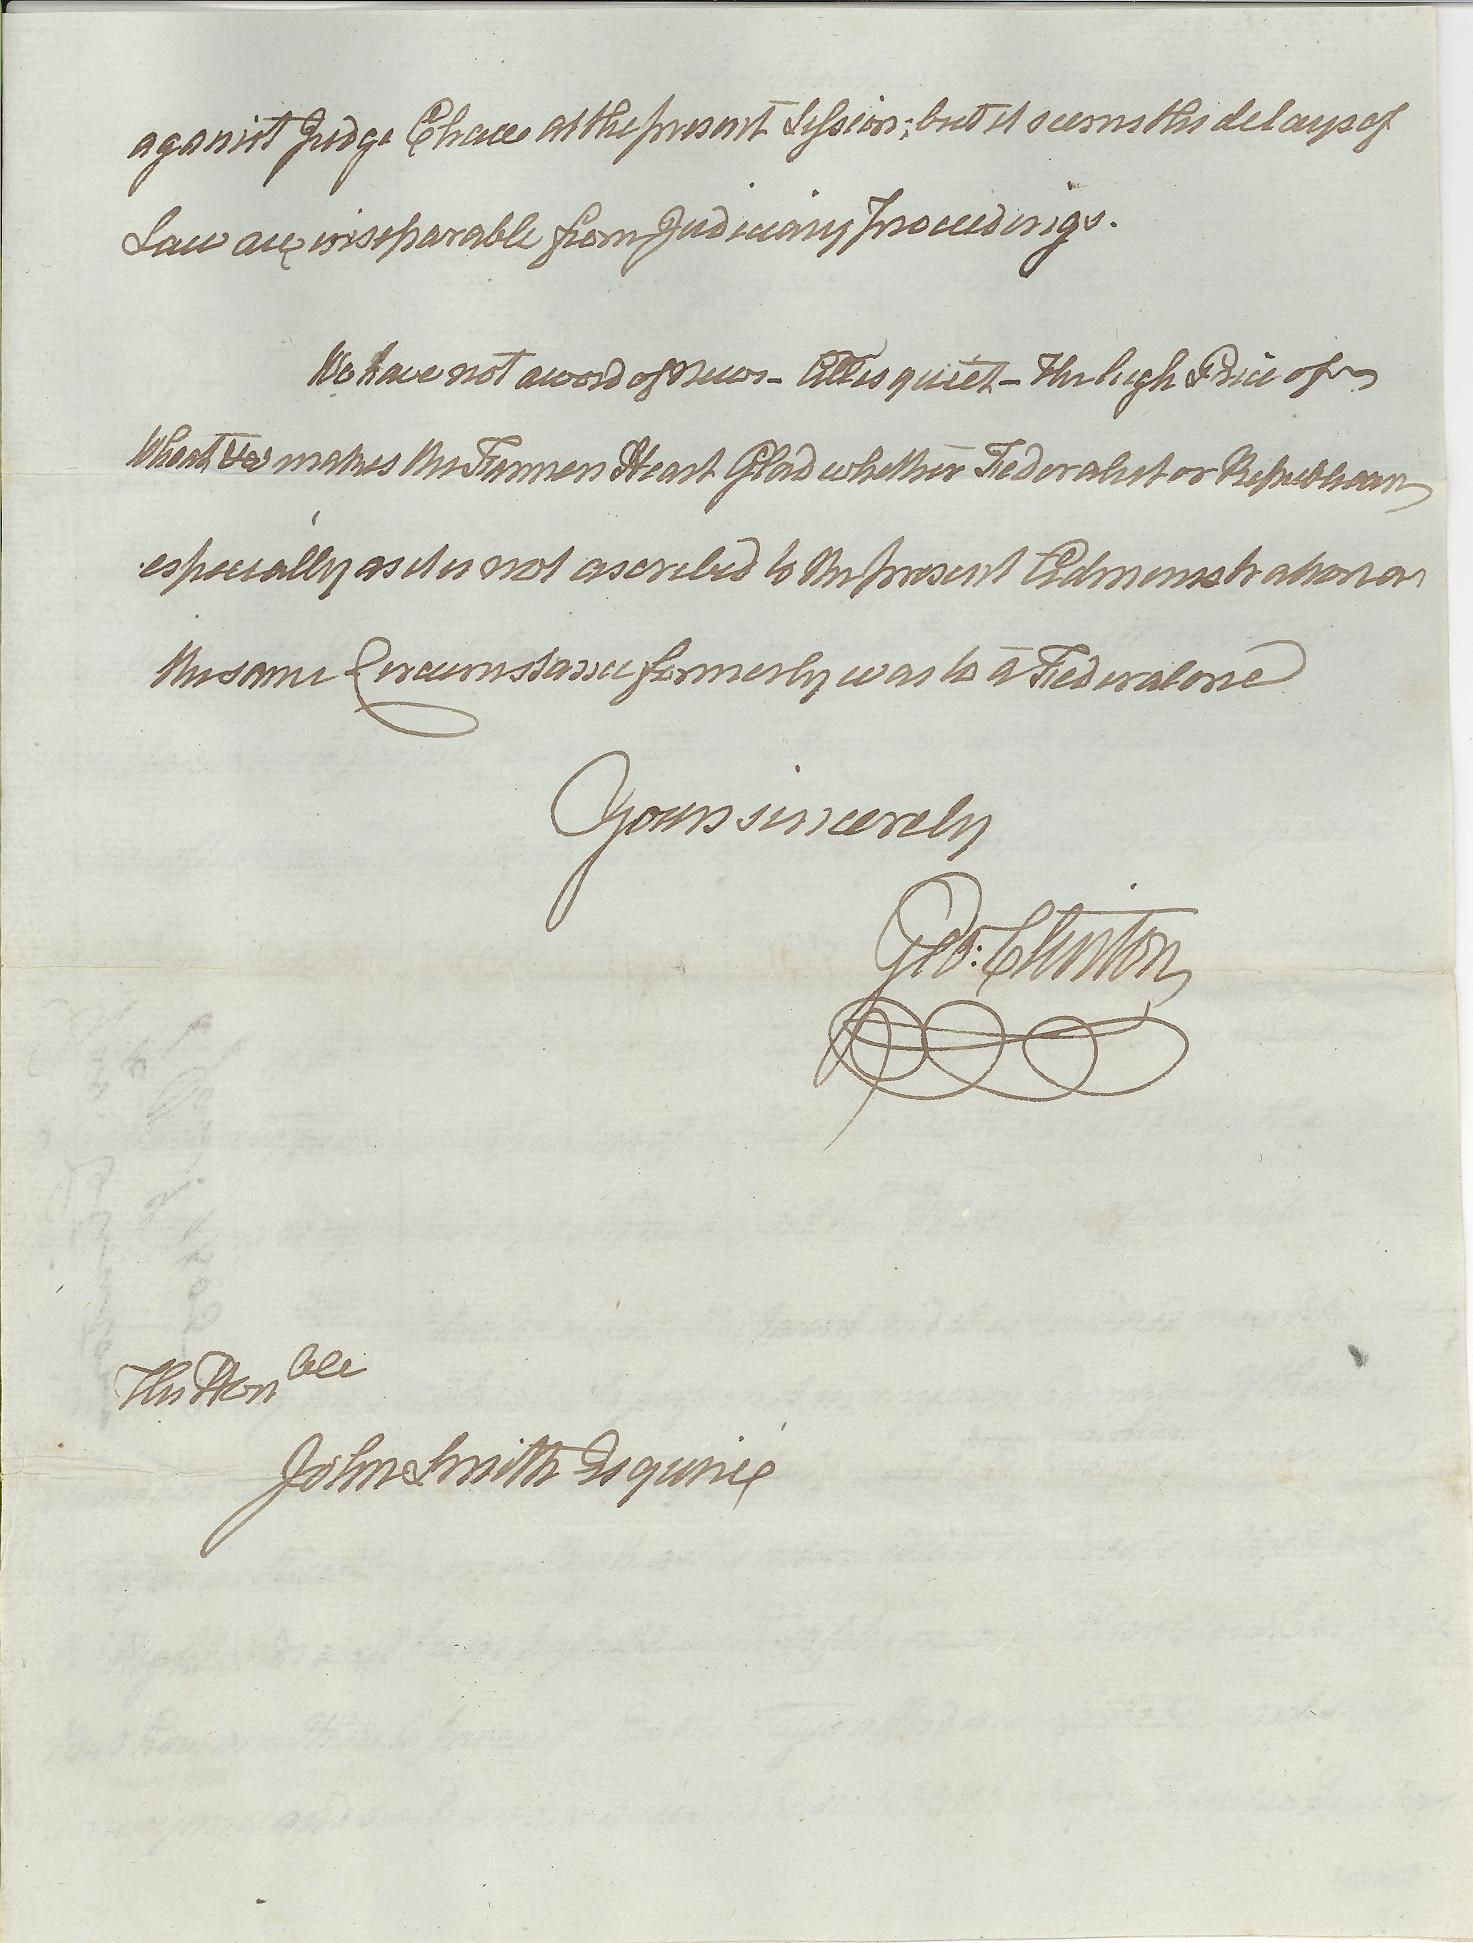 against Judge Chace at the present Session; but it seems the delays of
Law are inseparable from Judiciary Proceedings.
We have not a word of News - All is quiet - The high Price of
Wheat &ca makes the Farmers Heart Glad whether Federalist or Republican
especially as it is not ascribed to the present Administration as
the same Circumstance formerly was to a Federal one
Yours sincerely
Geo: Clinton
The Honble
John Smith Esquire